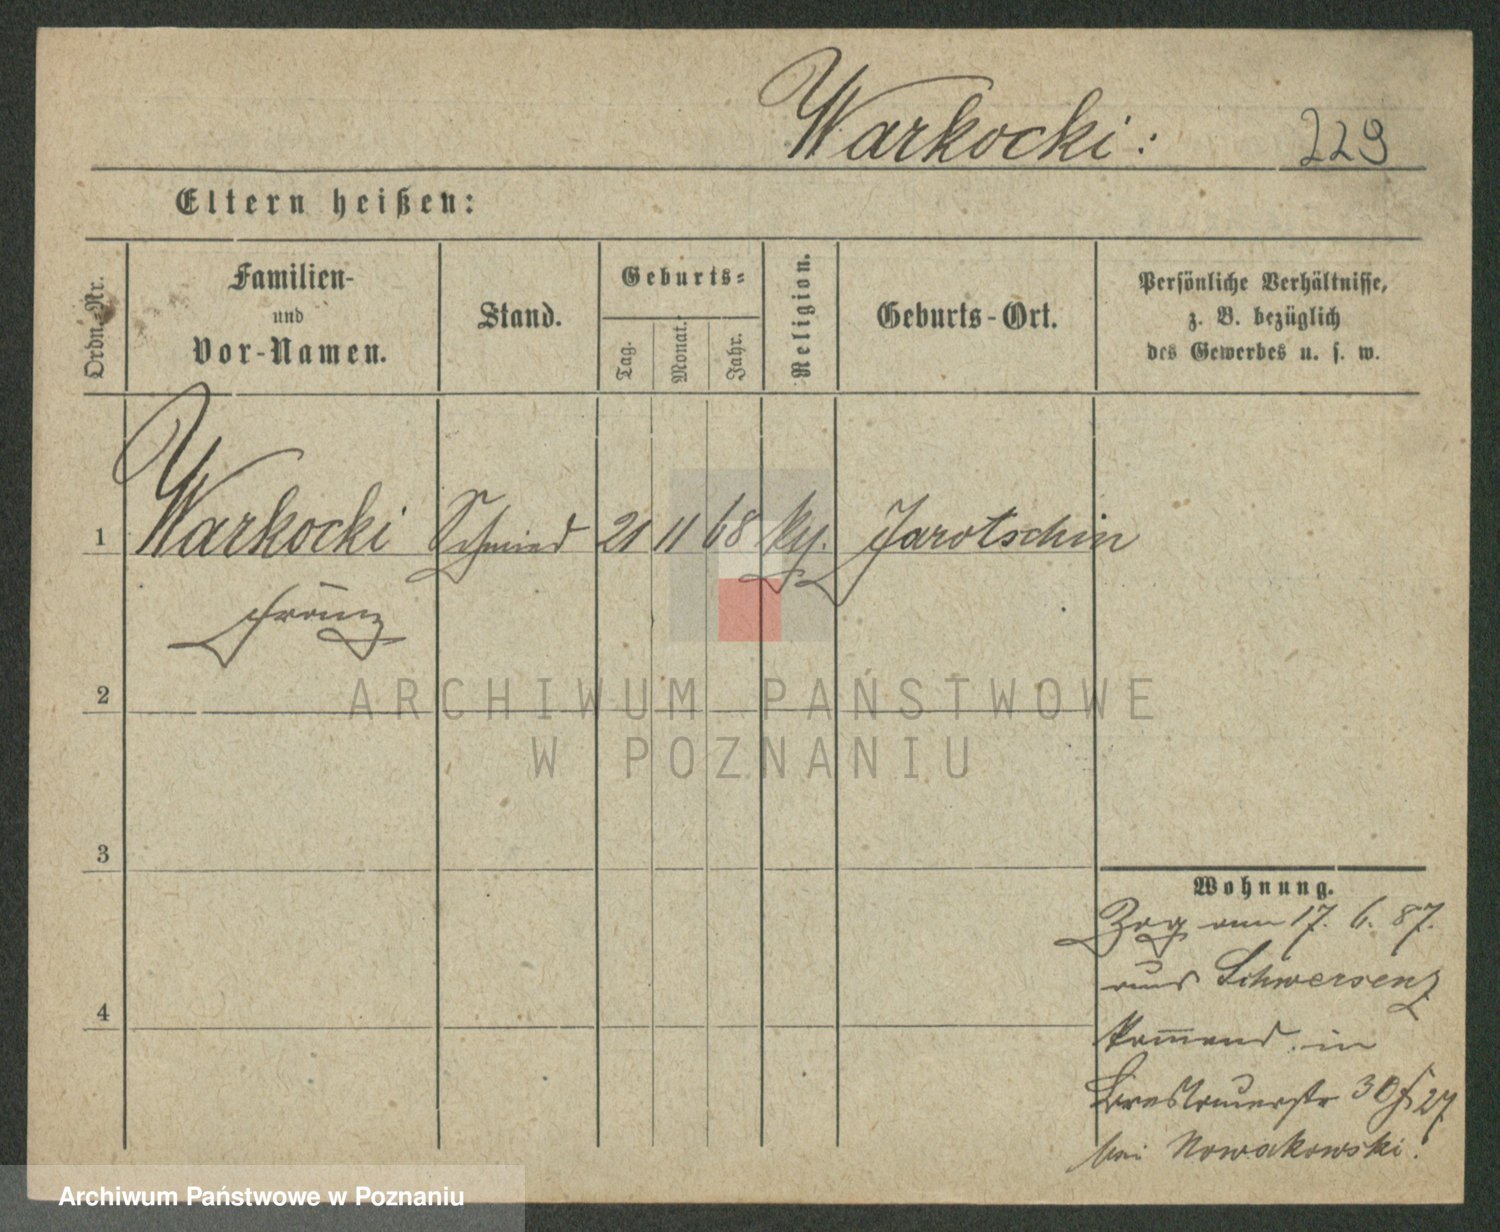 Warkocki: 229
Eltern heißen:
Ordn.-Nr.
Familien-
und
Vor-Namen.
Stand.
Geburts-
Tag.
Monat.
Jahr.
Religion.
Geburts-Ort.
Persönliche Verhältnisse,
z. B. bezüglich
des Gewerbes u. s. w.
1 Warkocki Schmied 21 11 68 Jarotschin
Franz
2
3
4
Wohnung.
Zog am 17. 6. 87.
aus Schwersenz
kom̅end in
30
bei Nowakowski.
ARCHIWUM PAŃSTWOWE
W POZNANIU
Archiwum Państwowe w Poznaniu